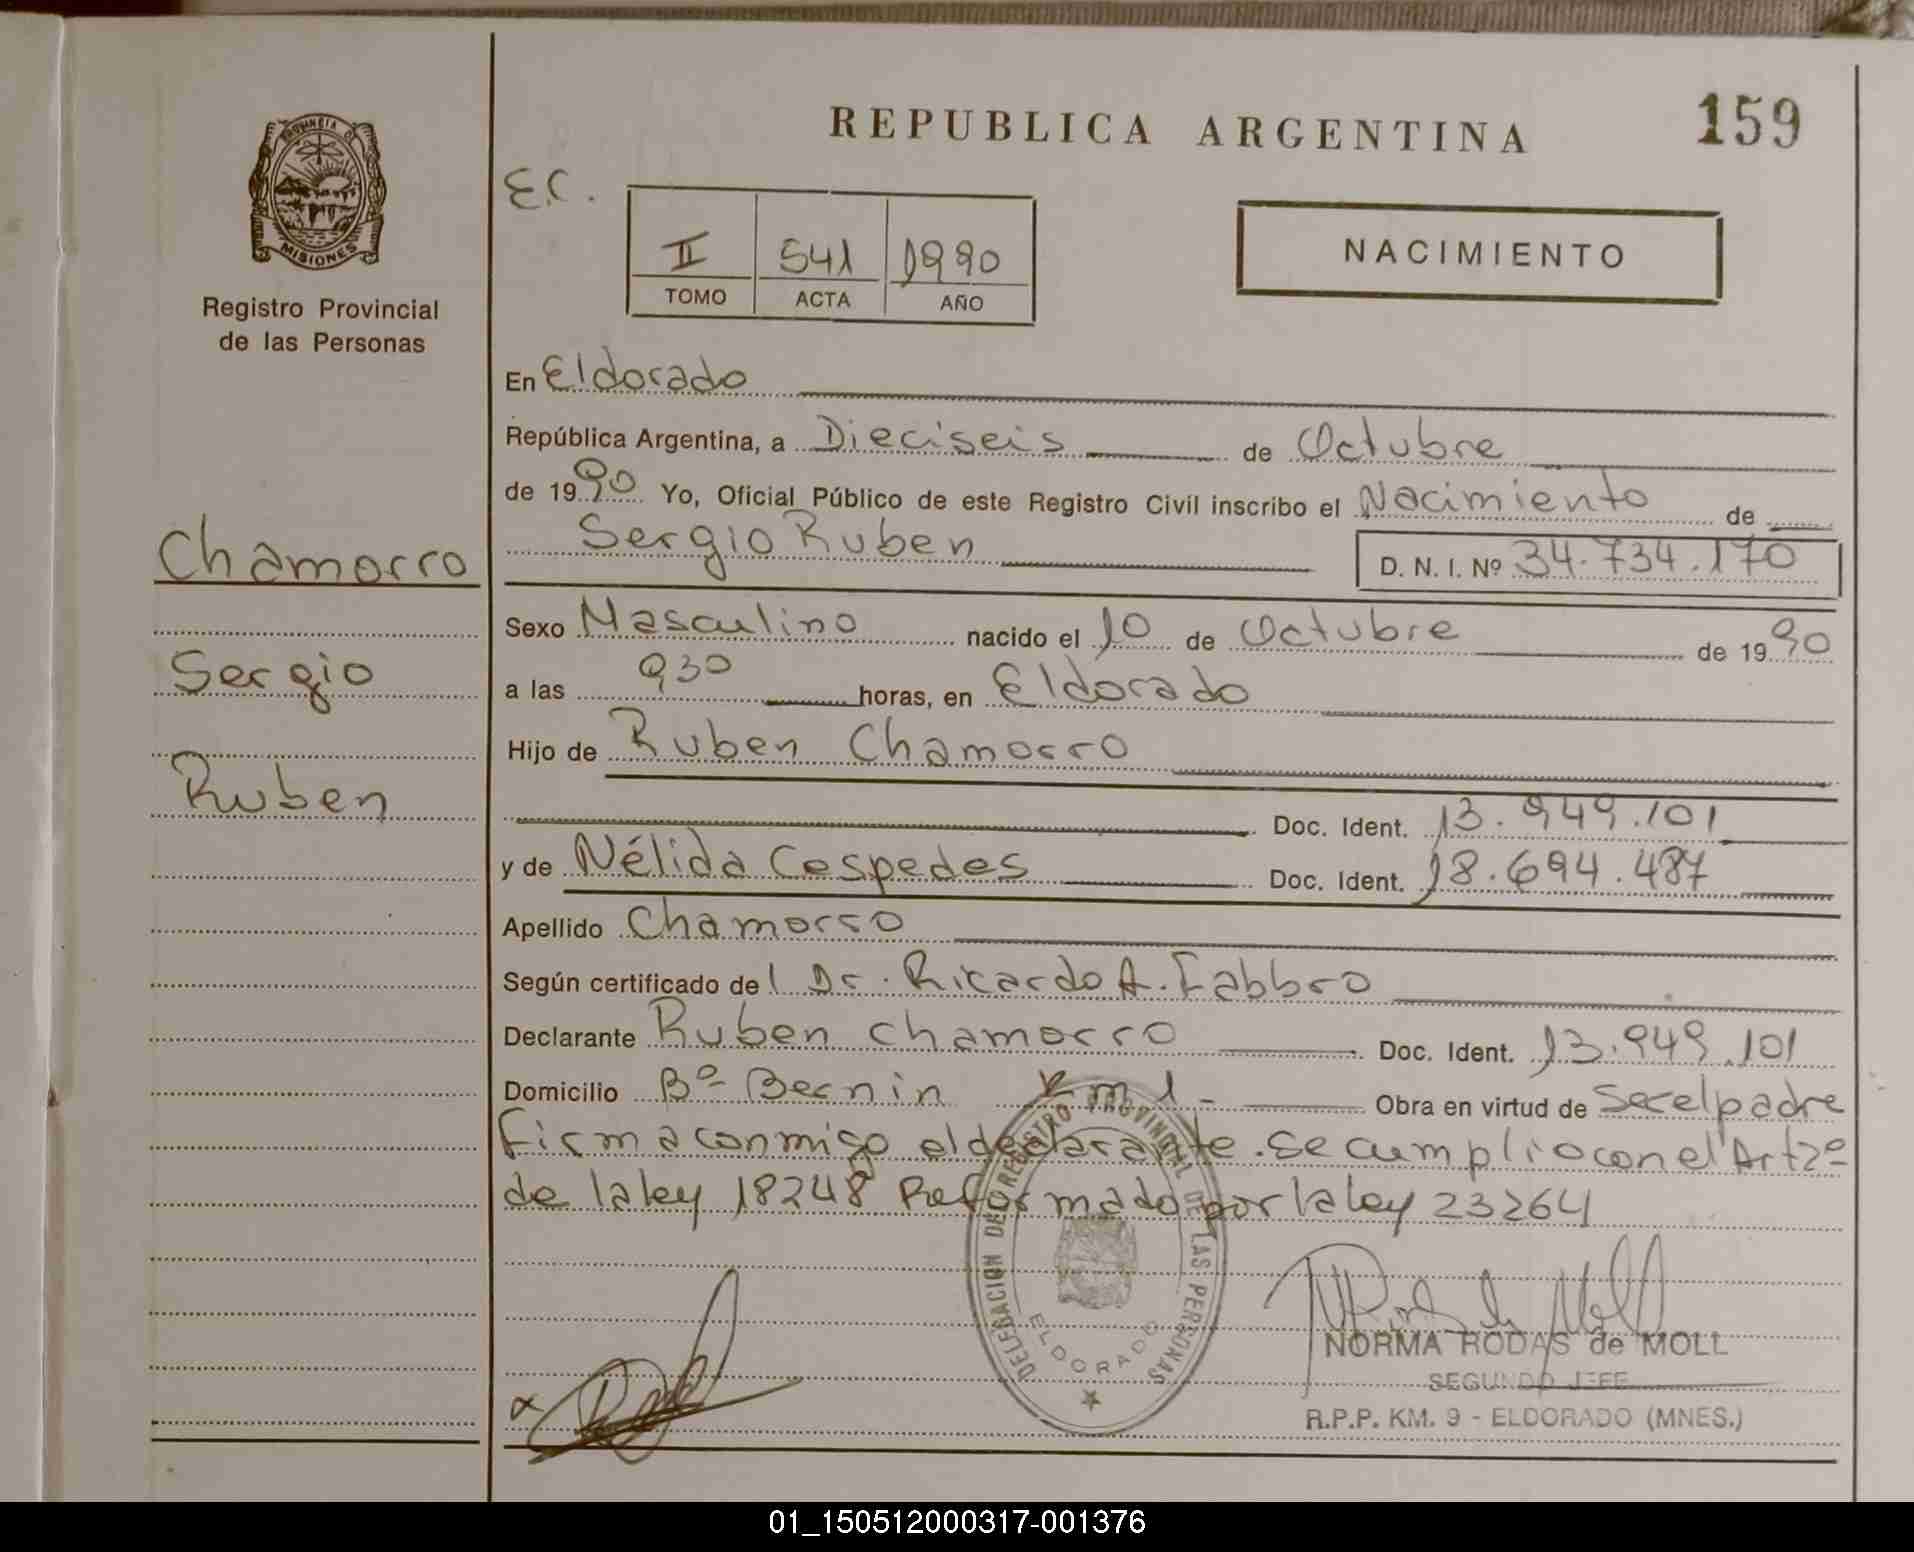 REPUBLICA ARGENTINA
159
PROVINCIA DE
MISIONES
Registro Provincial
de las Personas
E.C.
II 541 1990
TOMO ACTA AÑO
NACIMIENTO
En Eldorado
República Argentina, a Dieciseis de Octubre
de 1990 Yo, Oficial Público de este Registro Civil inscribo el Nacimiento de
Sergio Ruben D. N. I. Nº 34.734.170
Chamorro
Sergio
Ruben
Sexo Masculino nacido el 10 de Octubre de 1990
a las 930 horas, en Eldorado
Hijo de Ruben Chamorro
Doc. Ident. 13.949.101
y de Nélida Cespedes Doc. Ident. 18.694.487
Apellido Chamorro
Según certificado del Dr. Ricardo A. Fabbro
Declarante Ruben Chamorro Doc. Ident. 13.949.101
Domicilio Bº Bernin Km 1- Obra en virtud de Ser el padre
Firma conmigo el declarante. Se cumplio con el Art 2º
de la ley 18248 Reformado por la ley 23264
DELEGACION DEL REGISTRO PROVINCIAL DE LAS PERSONAS
ELDORADO
NORMA RODAS de MOLL
SEGUNDO JEFE
R.P.P. KM. 9 - ELDORADO (MNES.)
01_150512000317-001376